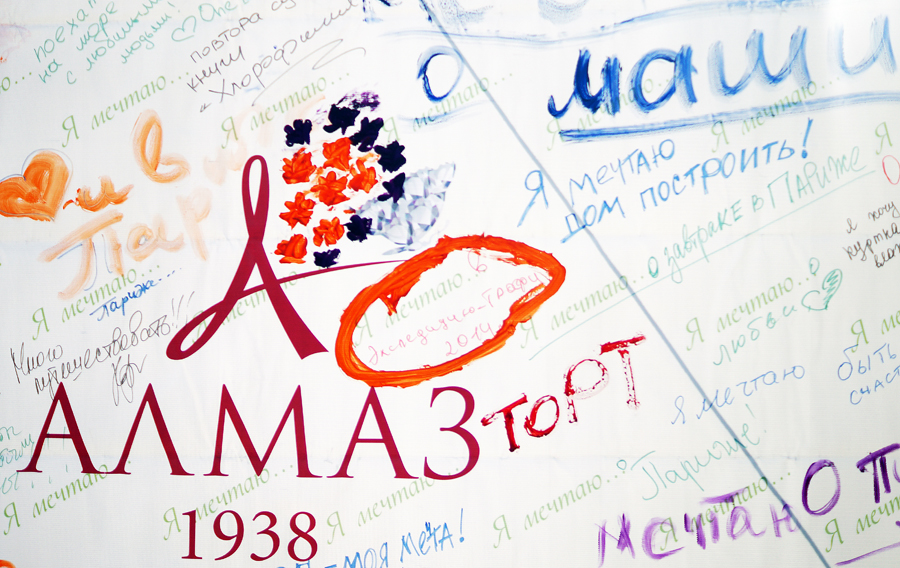 поехать
на море
с любимыми
людьми
One
повтора
книги
"Хлорофилия
о маши
Я мечтаю...
Я мечтаю...
Я мечтаю...
Я мечтаю...
Я мечтаю...
и в
Париж
Я мечтаю
дом построить!
о завтраке в Париже
я хочу
куртка
в
Экспедицию-Трофи
2014
Я мечтаю...
Париже...
Я мечтаю...
Я мечтаю...
Я мечтаю...
любви
Я мечтаю...
Много
путешествовать!!!
Я
быть
счаст
Я мечтаю
АЛМАЗ
ТОРТ
1938
Париже!
Я мечтаю...
Я мечтаю...
Я мечтаю...
Я мечтаю...
Мечтаю О П
моя мечта!